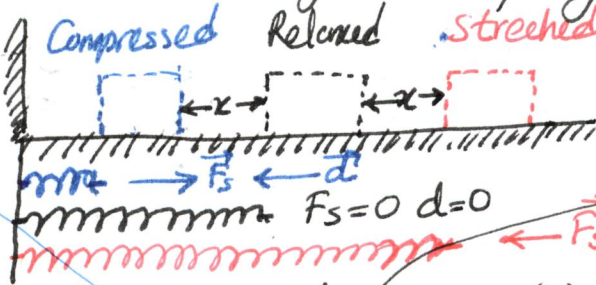 Compressed Relaxed Streched
x x
F⃗s d⃗
Fs=0 d=0
F⃗s